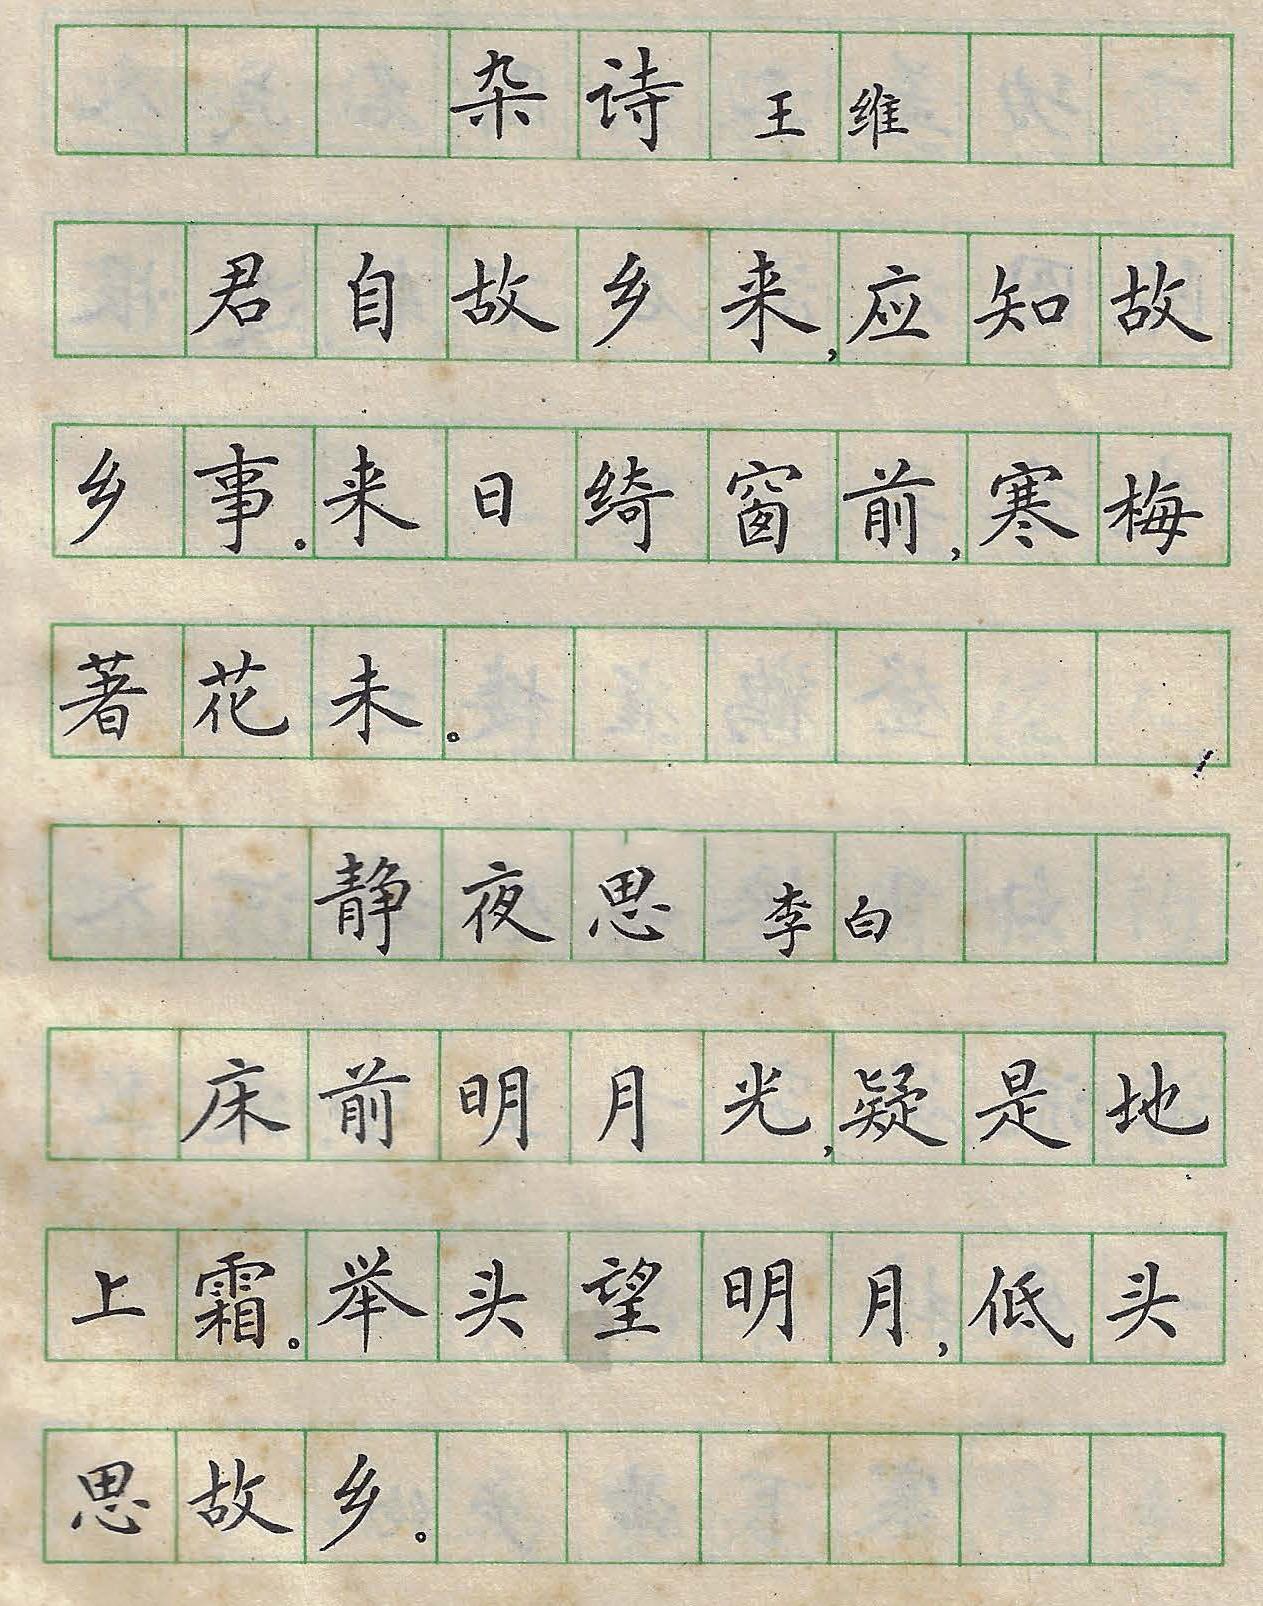 杂诗 王维
君自故乡来,应知故
乡事。来日绮窗前,寒梅
著花未。
静夜思 李白
床前明月光,疑是地
上霜。举头望明月,低头
思故乡。